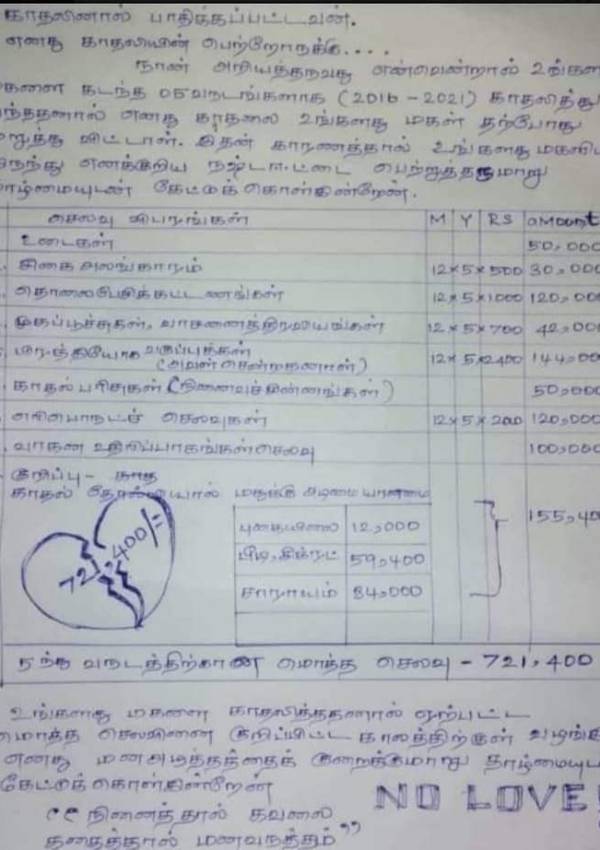 காதலினால் பாதிக்கப்பட்டவன்.
எனது காதலியின் பெற்றோருக்கு....
நான் அறியத்தருவது என்வென்றால் உங்கள
களை கடந்த 05 வருடங்களாக (2016 - 2021) காதலித்து
ந்ததனால் எனது காதலை உங்களது மகள் தற்போது
றுத்து விட்டாள். இதன் காரணத்தால் உங்களது மகளிட
ருந்து எனக்குரிய நஷ்டஈட்டை பெற்றுத்தருமாறு
ாழ்மையுடன் கேட்டுக்கொள்கின்றேன்.
செலவு விபரங்கள் M Y RS amount
உடைகள் 50,000
சிகை அலங்காரம் 12×5×500 30,000
தொலைபேசிக்கட்டணங்கள் 12×5×1000 120,000
முகப்பூச்சுகள், வாசனைத்திரவியங்கள் 12×5×700 42,000
பிரத்தியோக வகுப்புக்கள் 12×5×2400 144,000
(அவள் சென்றதனால்)
காதல் பரிசுகள் (நினைவுச்சின்னங்கள்) 50,000
எரிபொருட் செலவுகள் 12×5×200 120,000
வாகன உதிரிப்பாகங்கள் செலவு 100,000
குறிப்பு - காத
காதல் தோல்வியால் மதுக்கு அடிமையானமை
721,400/=
புகையிலை 12,000
பீடி, சிகரட் 59,400
சாராயம் 84,000
155,40
5 ந்து வருடத்திற்கான மொத்த செலவு - 721,400
உங்களது மகளை காதலித்ததனால் ஏற்பட்ட
மொத்த செலவினை குறிப்பிட்ட காலத்திற்குள் வழங்கி
எனது மனஅழுத்தத்தைக் குறைக்குமாறு தாழ்மையுட
கேட்டுக்கொள்கின்றேன்
NO LOVE!
"நினைத்தால் கவலை
தகைத்தால் மனவருத்தம்"